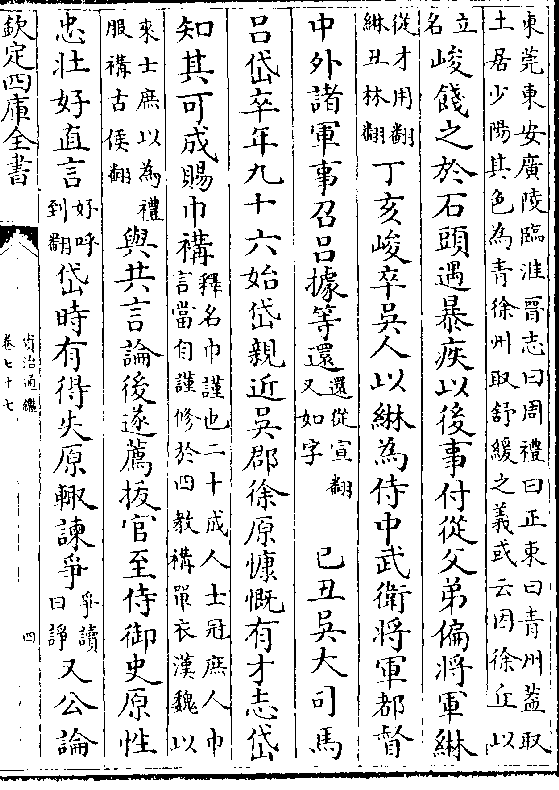 東莞東安廣陵臨淮晉志曰周禮曰正東曰青州蓋取
土居少陽其色為青徐州取舒緩之義或云因徐丘以
立
名
峻餞之於石頭遇暴疾以後事付從父弟偏將軍綝
從才用翻
綝丑林翻
丁亥峻卒吳人以綝為侍中武衛將軍都督
中外諸軍事召呂據等還
還從宣翻
又如字
己丑吳大司馬
呂岱卒年九十六始岱親近吳郡徐原慷慨有才志岱
知其可成賜巾褠
釋名巾謹也二十成人士冠庶人巾
言當自謹修於四教褠單衣漢魏以
來士庶以為禮
服褠古侯翻
與共言論後遂薦拔官至侍御史原性
忠壯好直言
好呼
到翻
岱時有得失原輙諫爭
爭讀
曰諍
又公論
欽定四庫全書
資治通鑑
卷七十七
四